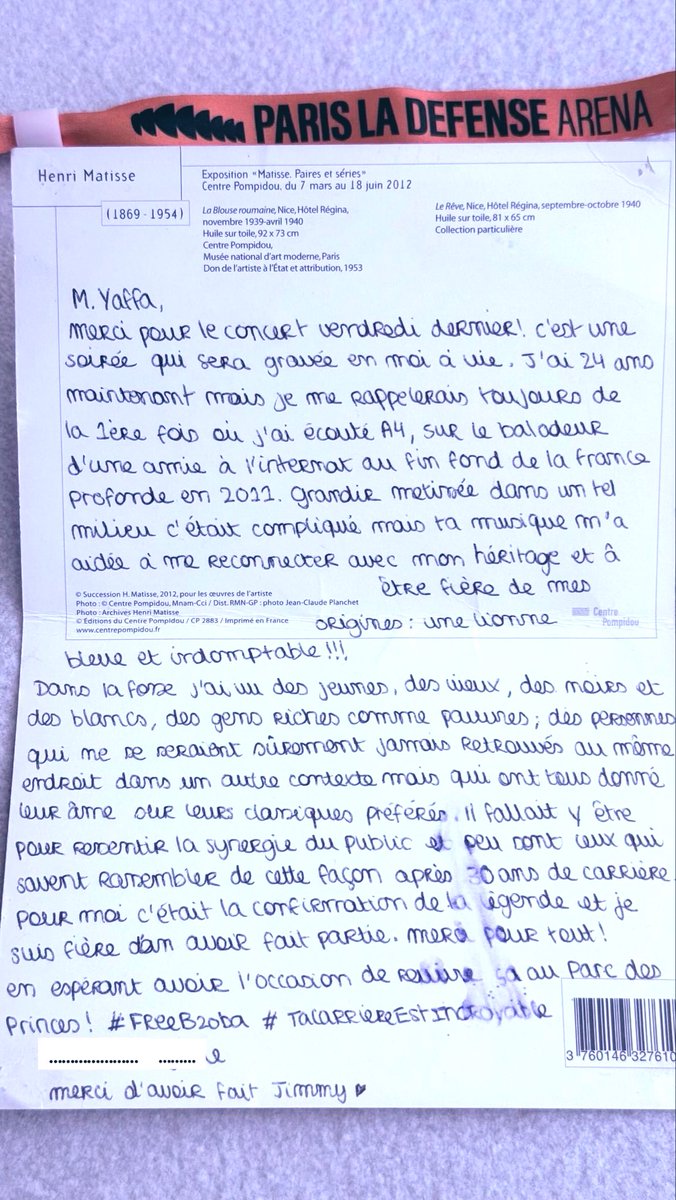 PARIS LA DEFENSE ARENA
Henri Matisse
(1869 - 1954)
Exposition "Matisse. Paires et séries"
Centre Pompidou, du 7 mars au 18 juin 2012
La Blouse roumaine, Nice, Hôtel Régina,
novembre 1939-avril 1940
Huile sur toile, 92 x 73 cm
Centre Pompidou,
Musée national d'art moderne, Paris
Don de l'artiste à l'État et attribution, 1953
Le Rêve, Nice, Hôtel Régina, septembre-octobre 1940
Huile sur toile, 81 x 65 cm
Collection particulière
M. Yaffa,
merci pour le concert vendredi dernier! c'est une
soirée qui sera gravée en moi à vie. J'ai 24 ans
maintenant mais je me rappelerais toujours de
la 1ère fois où j'ai écouté A4, sur le baladeur
d'une amie à l'internat au fin fond de la france
profonde en 2011. grandir metissée dans un tel
milieu c'était compliqué mais ta musique m'a
aidée à me reconnecter avec mon héritage et à
être fière de mes
origines : une lionne
bleue et indomptable!!!
© Succession H. Matisse, 2012, pour les œuvres de l'artiste
Photo : © Centre Pompidou, Mnam-Cci / Dist. RMN-GP : photo Jean-Claude Planchet
Photo : Archives Henri Matisse
© Éditions du Centre Pompidou / CP 2883 / Imprimé en France
www.centrepompidou.fr
Centre
Pompidou
Dans la fosse j'ai vu des jeunes, des vieux, des noirs et
des blancs, des gens riches comme pauvres; des personnes
qui ne se seraient sûrement jamais retrouvés au même
endroit dans un autre contexte mais qui ont tous donné
leur âme sur leurs classiques préférés. il fallait y être
pour ressentir la synergie du public et peu sont ceux qui
savent rassembler de cette façon après 30 ans de carrière.
pour moi c'était la confirmation de la légende et je
suis fière d'en avoir fait partie. merci pour tout!
en espérant avoir l'occasion de revivre ça au Parc des
Princes! #FreeB2oba #TaCarriereEstIncroyable
merci d'avoir fait Jimmy ♥
3 760146 327610